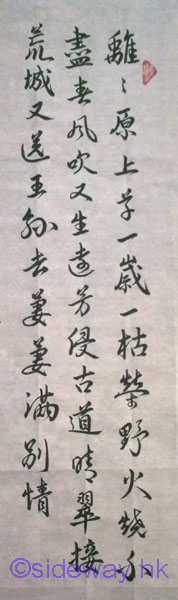 離〻原上草一歲一枯榮野火燒不
盡春風吹又生遠芳侵古道晴翠接
荒城又送王孫去萋萋滿別情
©sideway.hk